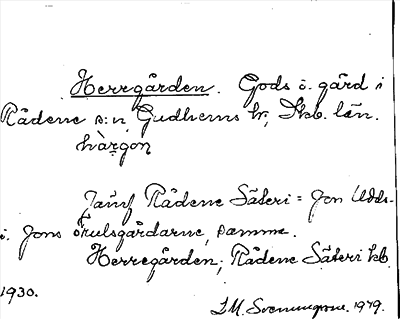 Herregården. Gods o. gård i
Rådene s:n, Gudhems hr, Skb. län.
hærgon
Jämf Rådene Säteri = Jon Udds-
i. Jons Örulsgårdarne, samme.
Herregården; Rådene Säteri kb.
1930.
1949.